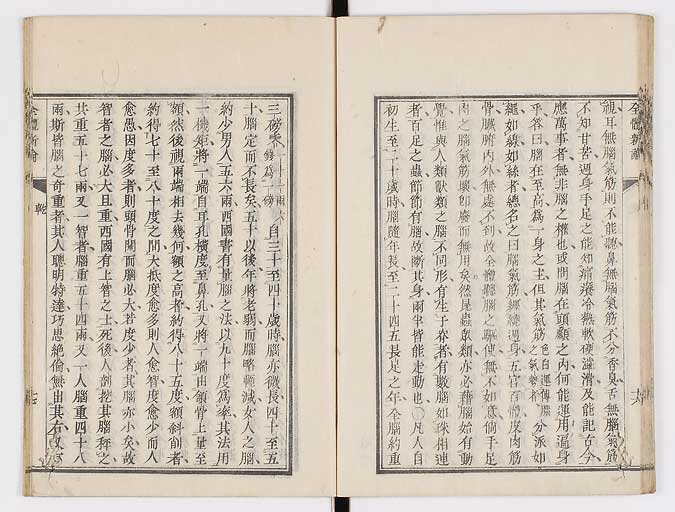 全體新論
視耳無腦氣筋則不能聽鼻無腦氣筋不分香臭舌無腦氣筋
不知甘苦週身手足之能知痛癢冷熱軟硬澁滑及能記古今
應萬事者無非腦之權也或問腦在頭顱之內何能運用週身
乎答曰腦在至高為一身之主但其氣筋 分派如
繩如線如絲者總名之曰腦氣筋纏繞週身五官百體皮肉筋
骨臟腑內外無處不到故全體聽腦之驅使無不如意倘手足
內之腦氣筋壞即癈而無用矣然昆蟲衆類亦必藉腦始有動
覺惟與人類獸類之腦不同形有生于脊者有數腦如珠相連
者百足之蟲節節有腦故斷其身兩半皆能走動也〇凡人自
初生至二十歲時腦隨年長至二十四五長足之年全腦約重
三磅零 自三十至四十歲時腦亦微長四十至五
十腦定而不長矣五十以後年將老弱而腦略輕減女人之腦
約少男人五六兩西國書有量腦之法以九十度為率其法用
一機矩將一端自耳孔橫度至鼻孔又將一端由額骨上量至
額然後視兩端相去幾何額之高者約得八十五度額斜削者
約得七十至八十度之間大抵度愈多則人愈智度愈少而人
愈愚因度多者則頭骨闊而腦必大若度少者其腦亦小矣故
智者之腦必大且重西國有上智之士死後人剖挖其腦秤之
共重五十七兩又一智者腦重五十四兩又一人腦重四十八
兩斯皆腦之奇重者其人聰明特達巧思絶倫無出其右又
全體新論
乾